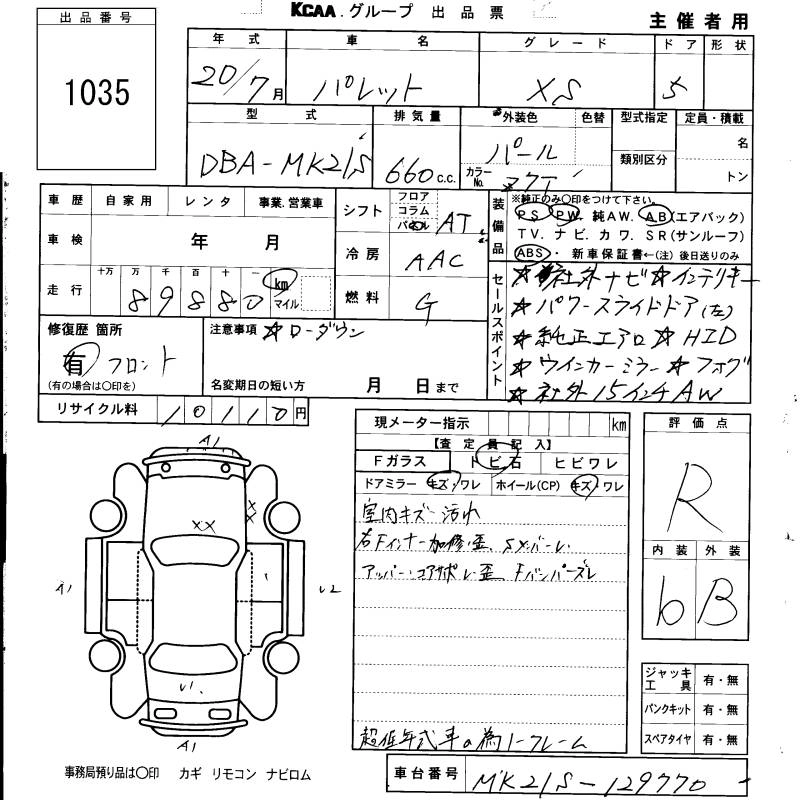 KCAA.グループ 出品票
主催者用
出品番号
1035
年式 車名 グレード ドア 形状
20/7月 パレット XS 5
型式 排気量 外装色 色替 型式指定 定員・積載
DBA-MK21S 660c.c. パール
カラーNo.
類別区分
名
トン
車歴 自家用 レンタ 事業.営業車
シフト フロア コラム AT
装備品
※純正のみ〇印をつけて下さい。
PS PW 純AW. AB(エアバック)
TV. ナビ. カワ. SR(サンルーフ)
ABS・ 新車保証書←(注)後日送りのみ
車検 年 月
冷房 AAC
走行 十万 万 千 百 十 一 km マイル
89880
燃料 G
セールスポイント
☆社外ナビ☆インテリキー
☆パワースライドドア(左)
☆純正エアロ☆HID
☆ウインカーミラー☆フォグ
☆社外15インチAW
修復歴 箇所
有 フロント
(有の場合は〇印を)
注意事項 ☆ローダウン
名変期日の短い方 月 日まで
リサイクル料 10110円
現メーター指示 km
【査定員記入】
Fガラス トビ石 ヒビワレ
ドアミラー キズ・ワレ ホイール(CP) キズ・ワレ
室内キズ 汚れ
右Fインナー加修歪、SXバーレ.
アッパー・コアサポレ歪、Fバンパーズレ
超低年式車の為ノークレーム
評価点
R
内装 外装
b B
ジャッキ工具 有・無
パンクキット 有・無
スペアタイヤ 有・無
A1
XX
X
X
A1
U2
U1
A1
事務局預り品は〇印 カギ リモコン ナビロム
車台番号 MK21S-129770